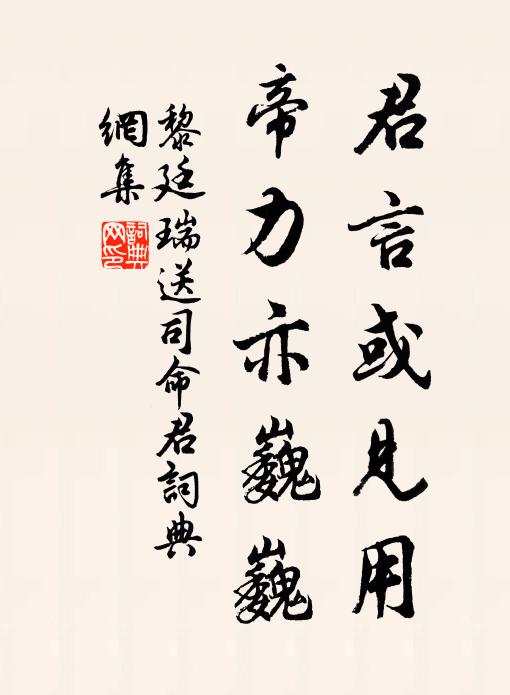 君言或見用
帝力亦巍巍
黎廷瑞送司命君詞典
網集
詞典
网印